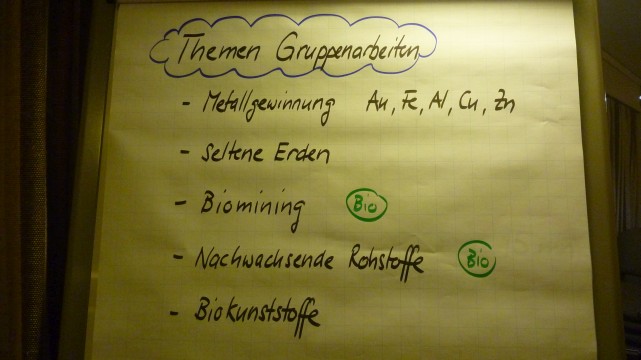 Themen Gruppenarbeiten
- Metallgewinnung Au, Fe, Al, Cu, Zn
- Seltene Erden
- Biomining Bio
- Nachwachsende Rohstoffe Bio
- Biokunststoffe